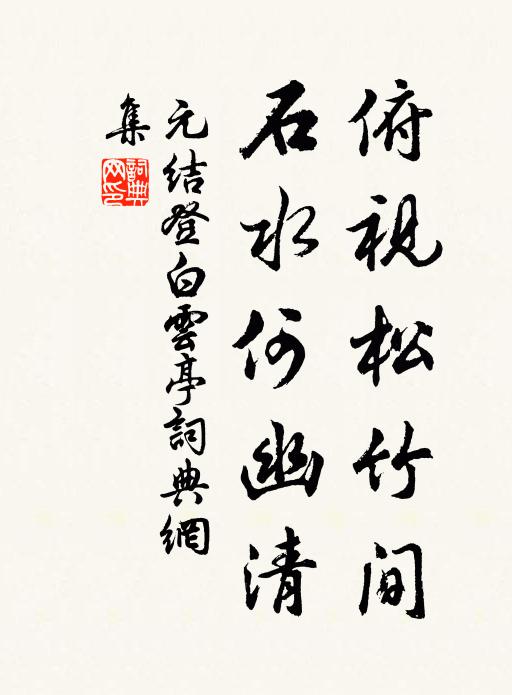 俯視松竹间
石水何幽清
元结登白雲亭詞典網
集
詞典
网印